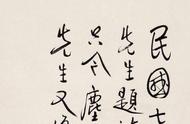 民國
先生題
只今塵
先生又